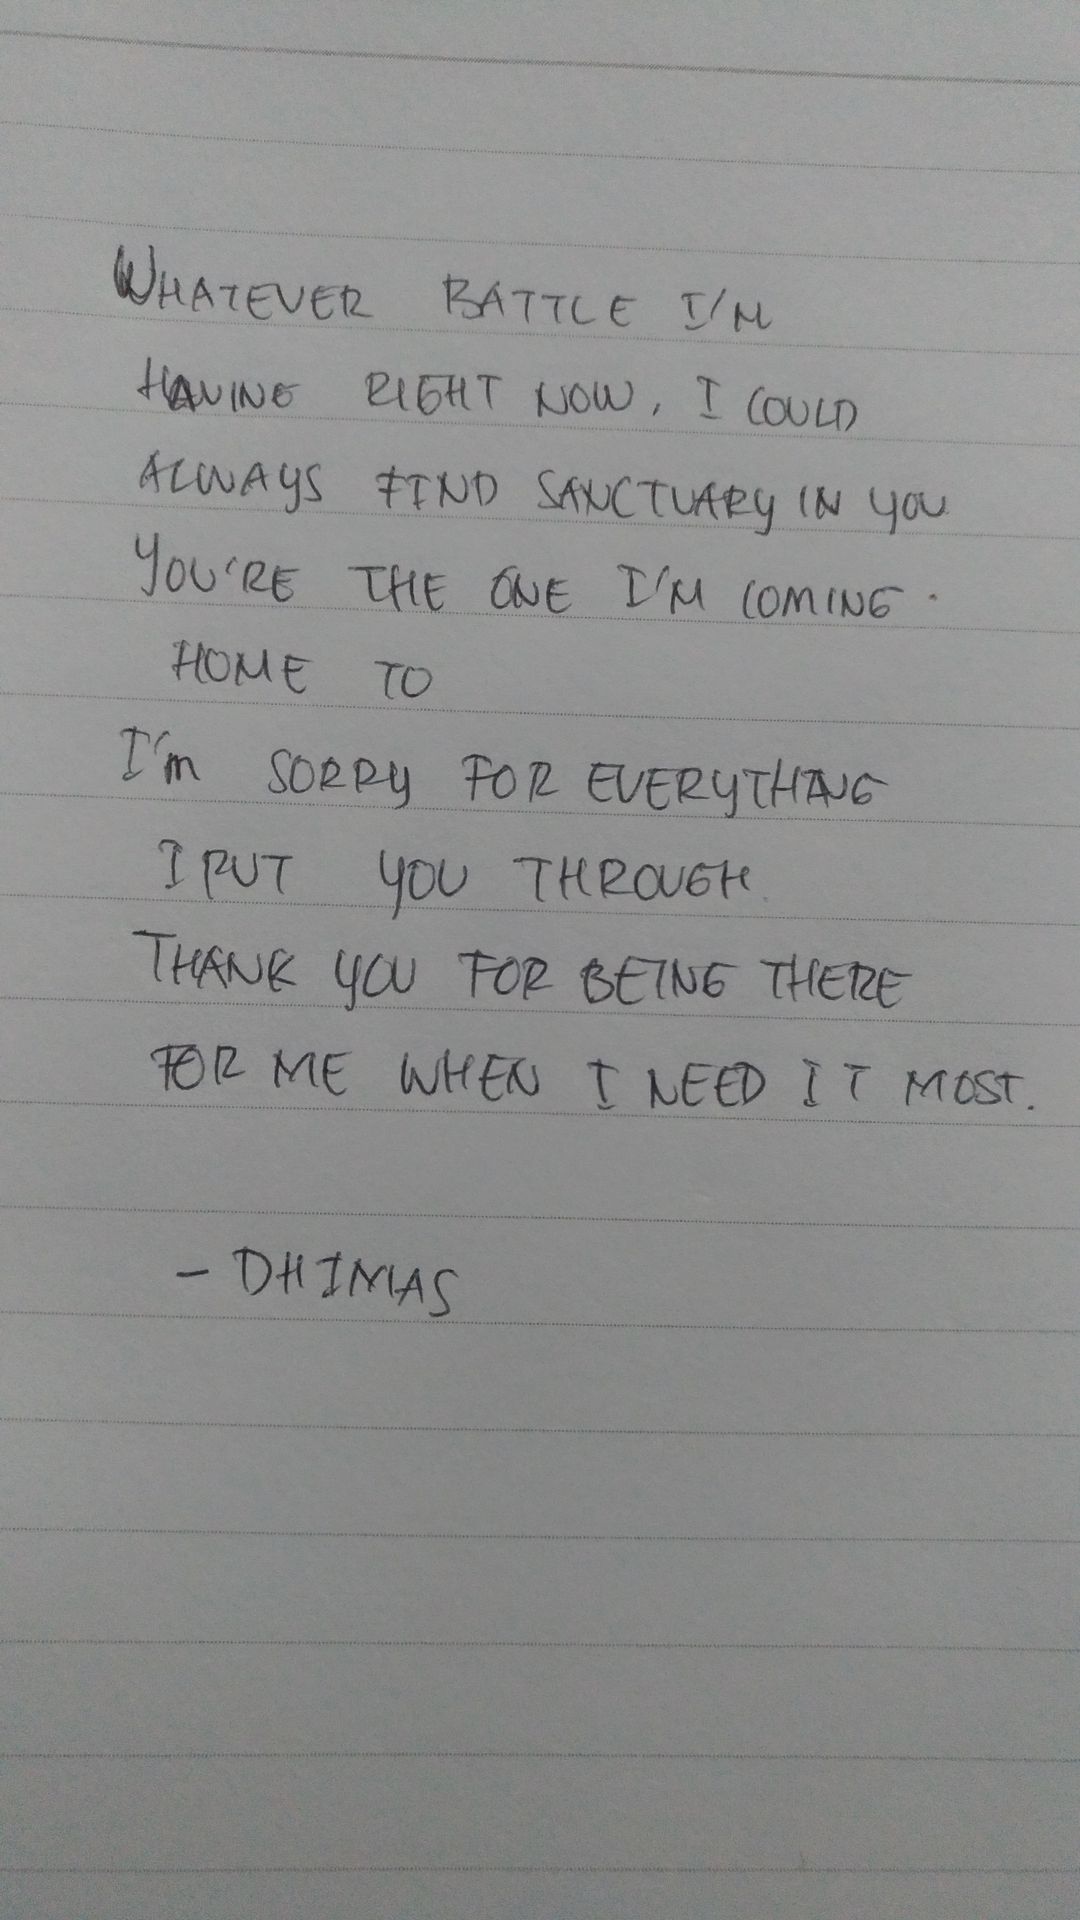 WHATEVER BATTLE I'M
HAVING RIGHT NOW, I COULD
ALWAYS FIND SANCTUARY IN YOU
YOU'RE THE ONE I'M COMING
HOME TO
I'm SORRY FOR EVERYTHING
I PUT YOU THROUGH
THANK YOU FOR BEING THERE
FOR ME WHEN I NEED IT MOST.
- DHIMAS